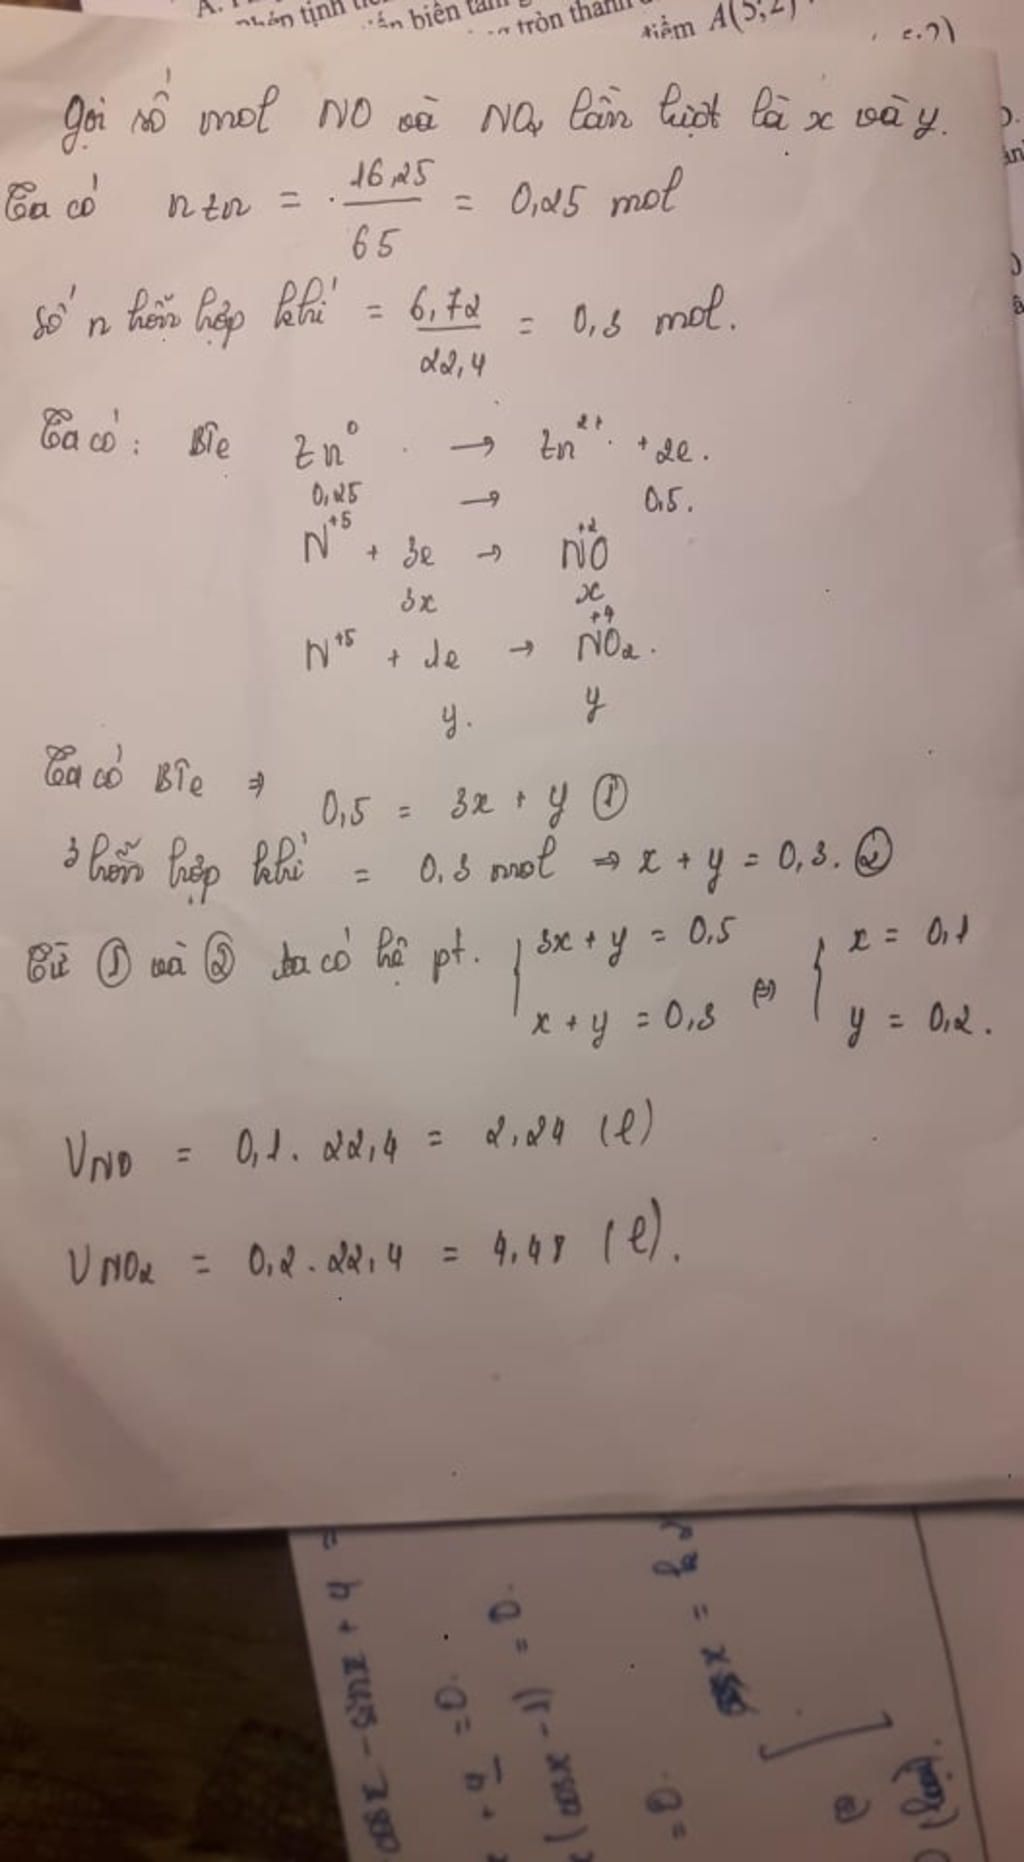 A.
tịnh
biên
tròn
điểm A(5;2)
Gọi số mol NO và NO₂ lần lượt là x và y.
Ta có n Zn = 16,25 / 65 = 0,25 mol
số n hỗn hợp khí = 6,72 / 22,4 = 0,3 mol.
Ta có: BTe Zn⁰ → Zn²⁺ + 2e.
0,25 → 0,5.
N⁺⁵ + 3e → N⁺²O
3x x
N⁺⁵ + 1e → N⁺⁴O₂.
y. y
Ta có BTe ⇒
0,5 = 3x + y ①
hỗn hợp khí = 0,3 mol ⇒ x + y = 0,3. ②
Từ ① và ② ta có hệ pt. { 3x + y = 0,5 ⇔ { x = 0,1
x + y = 0,3 y = 0,2.
V NO = 0,1. 22,4 = 2,24 (l)
V NO₂ = 0,2. 22,4 = 4,48 (l).
cos x - sin x + 4 =
+ 4 = 0.
(cos x - 1) = 0.
= 0.
cos x =
(loại).